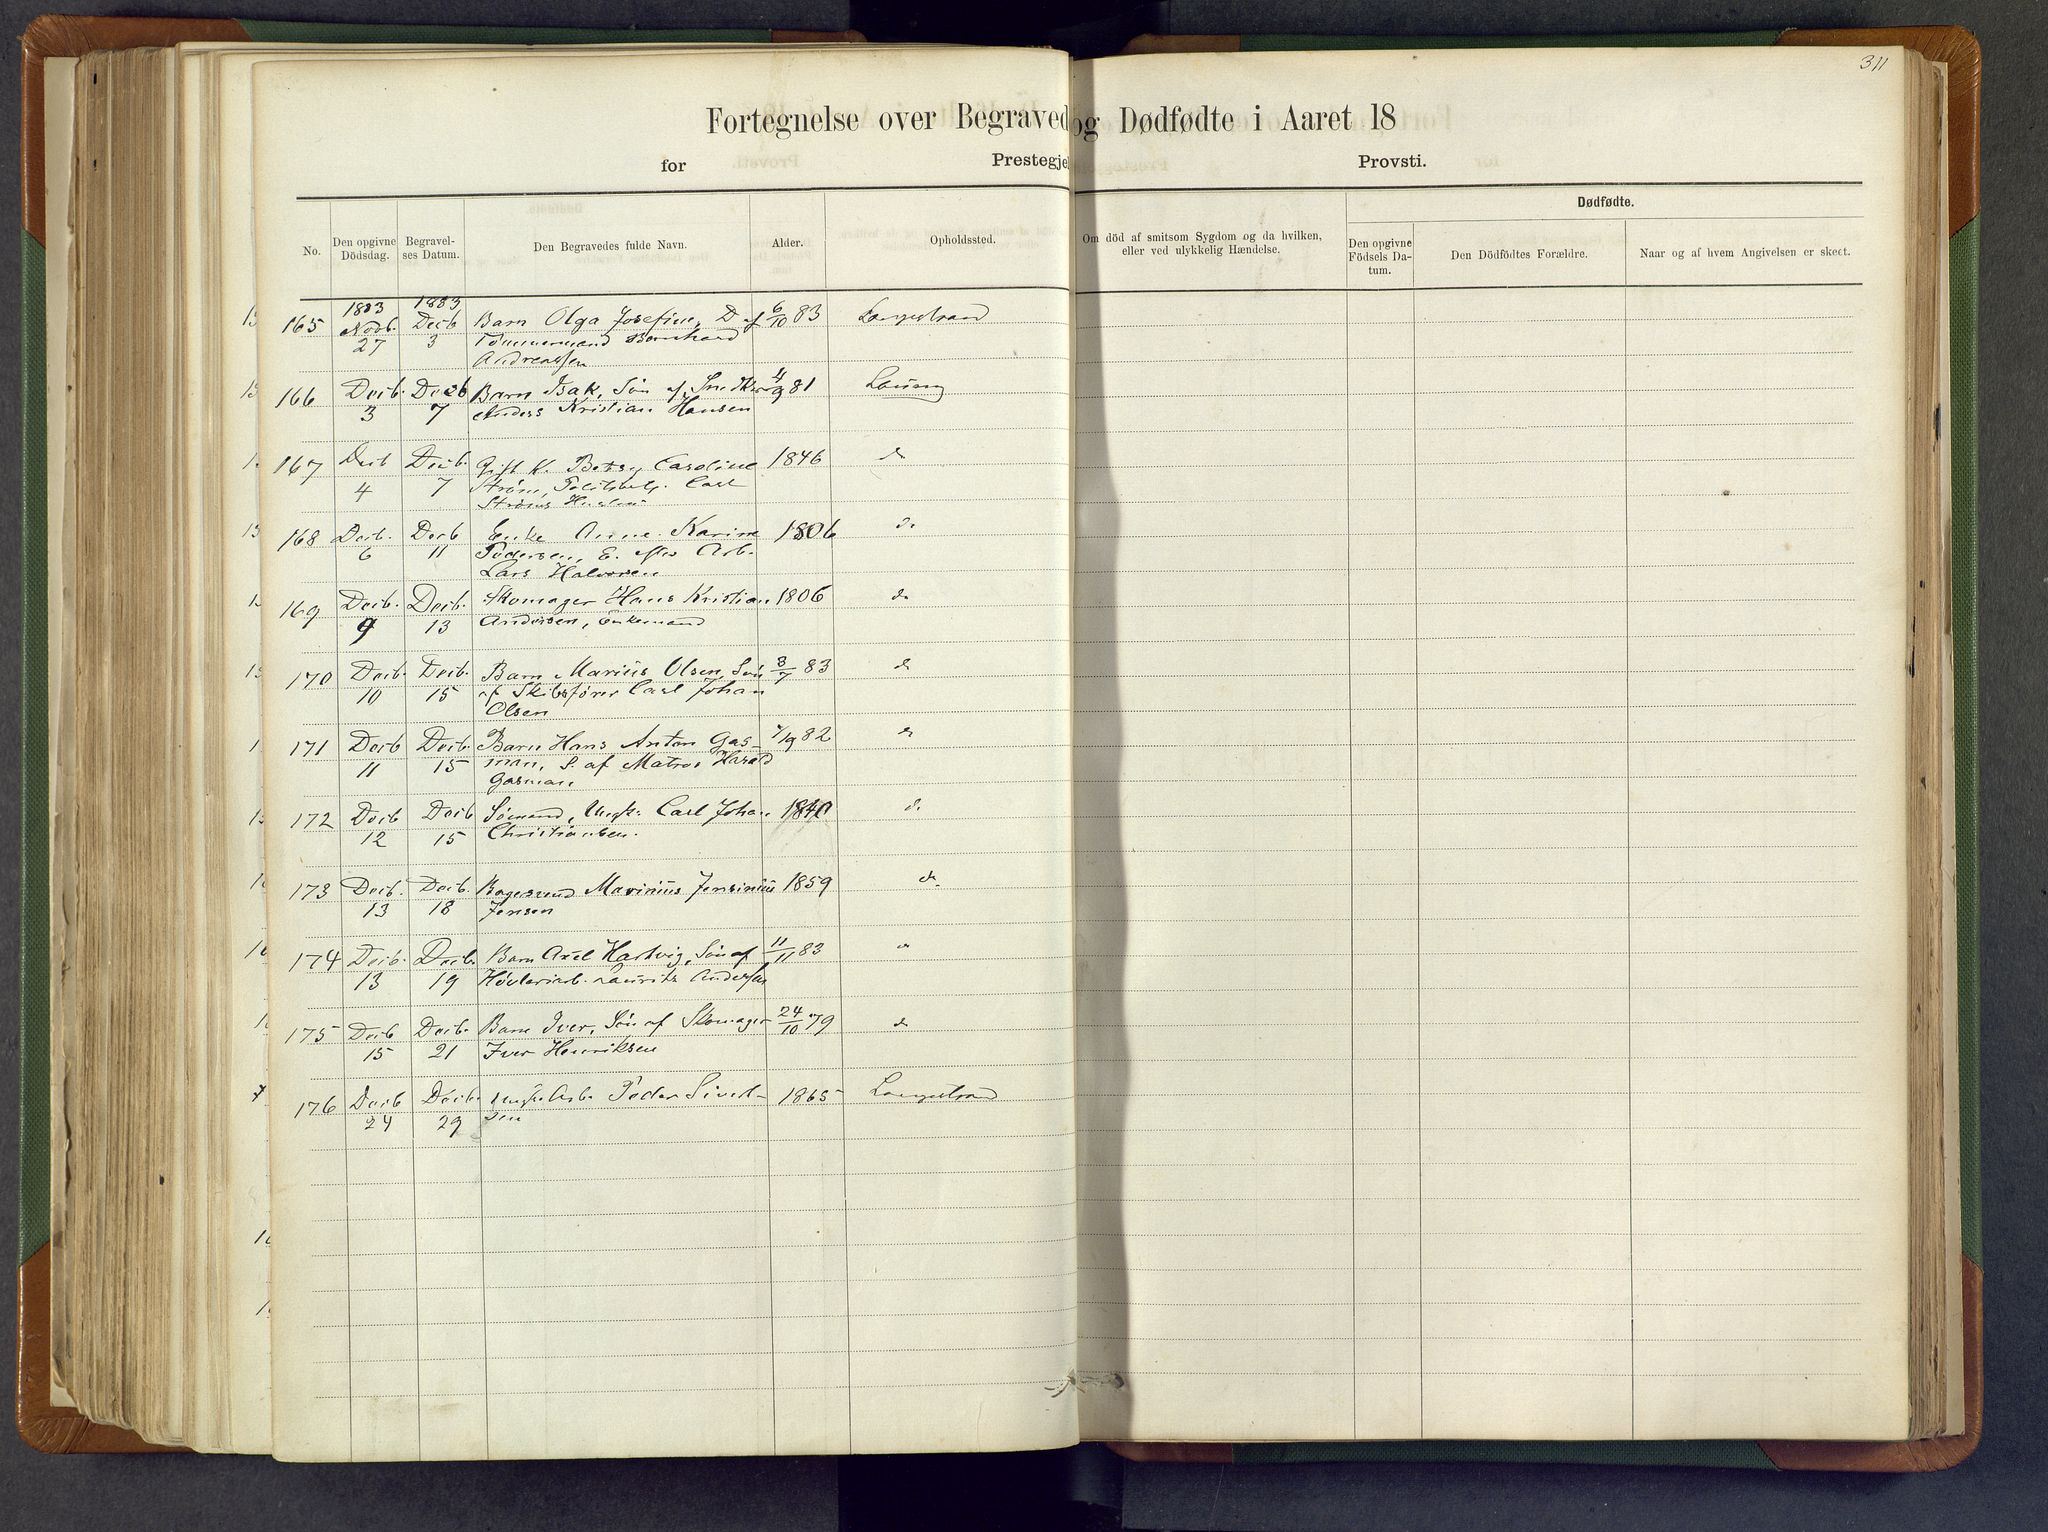 311
Fortegnelse over Begraved og Dødfødte i Aaret 18
for Prestegje Provsti.
No.
Den opgivne Dödsdag.
Begravelses Datum.
Den Begravedes fulde Navn.
Alder.
Opholdssted.
Om död af smitsom Sygdom og da hvilken,
eller ved ulykkelig Hændelse.
Dødfødte.
Den opgivne
Födsels Da-
tum.
Den Dödfödtes Forældre.
Naar og af hvem Angivelsen er skeet.
1883 1883
165 Novb. Decb Barn Olga Josefine, D. af 6/10 83 Langestrand
27 3 Tømmermand Bernhard
Andreassen
166 Decb. Decb Barn Isak, Søn af Snedker 4/9 81 Laurvig
3 7 Anders Kristian Hansen
167 Decb Decb. Gift K. Betsy Caroline 1846 do
4 7 Strøm, Carl
Strøms Hustru
168 Decb. Decb Enke Anne Karine 1806 do
6 11 Pedersen, E. efter Arb.
Lars Halvorsen
169 Decb. Decb. Skomager Hans Kristian 1806 do
9 13 Andersen, Enkemand
170 Decb. Decb. Barn Marius Olsen, Søn 3/7 83 do
10 15 af Skibsfører Carl Johan
Olsen
171 Decb Decb. Barn Hans Anton Gas- 82 do
11 15 man, S. af Matros Harald
Gasman
172 Decb Decb Sømand, Ungk. Carl Johan 1840 do
12 15 Christiansen.
173 Decb. Decb. Bagersvend Marinius Jensinius 1859 do.
13 18 Jensen
174 Decb. Decb. Barn Axel Hartvig, Søn af 11/11 83 do
13 19 Høvleriarb. Laurits Andersen
175 Decb Decb. Barn Iver, Søn af Skomager 24/10 79 do
15 21 Iver Henriksen
176 Decb Decb. Ungk. Arb. Peder Sivert- 1865 Langestrand
24 29 sen